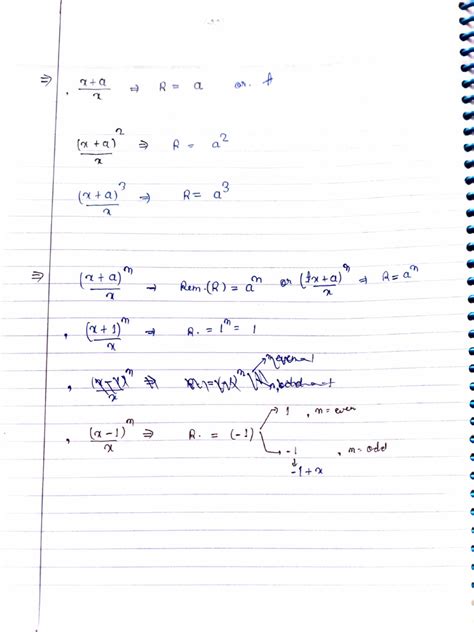 ⇒ . (x+a)/x ⇒ R = a or.
(x+a)²/x ⇒ R = a²
(x+a)³/x ⇒ R = a³
⇒ (x+a)ⁿ/x → Rem.(R) = aⁿ or (1x+a)ⁿ/x ⇒ R = aⁿ
, (x+1)ⁿ/x ⇒ R. = 1ⁿ = 1
, (x-1)ⁿ/x ⇒ R. = (-1) → 1 , n = even
→ -1 , n = odd
↓
-1+x